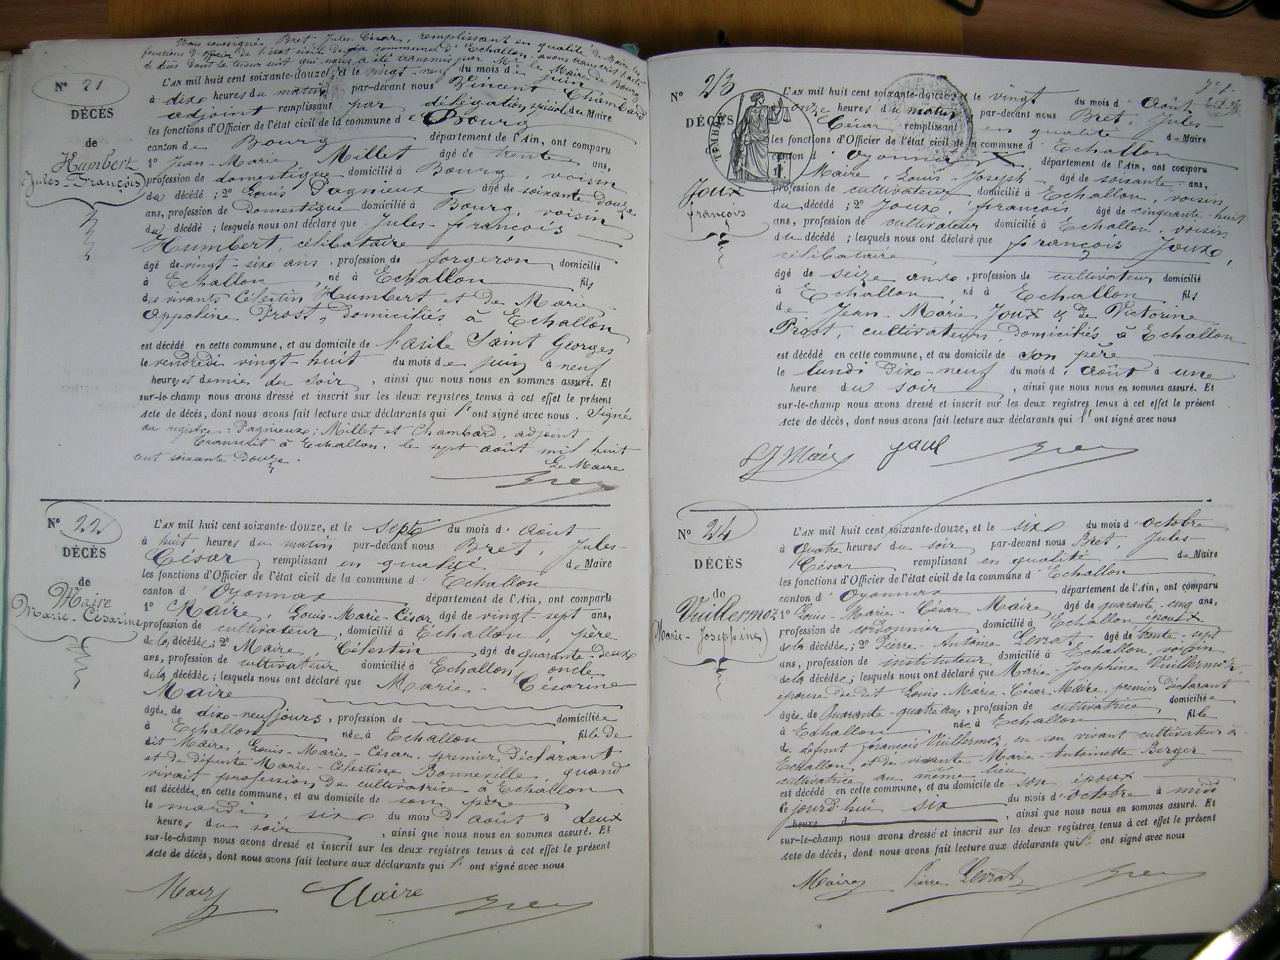 Nous soussigné, Bret Jules César, remplissant en qualité de Maire, les
fonctions d'officier de l'état civil de la commune d'Echallon, avons transcrit l'acte
de décès dont la teneur suit qui nous a été transmis par Mr. le Maire de Bourg
N° 21
DÉCÈS
de
Humbert
Jules-François
L'AN mil huit cent soixante-douze, et le vingt-neuf du mois de juin
à dix heures du matin par-devant nous Vincent Chambard
adjoint remplissant par délégation spéciale du Maire
les fonctions d'Officier de l'état civil de la commune de Bourg
canton de Bourg département de l'Ain, ont comparu
1° Jean-Marie Millet âgé de trente ans,
profession de domestique domicilié à Bourg voisin
du décédé ; 2° Louis Pagnieux âgé de soixante douze
ans, profession de Domestique domicilié à Bourg, voisin
du décédé ; lesquels nous ont déclaré que Jules-françois
Humbert célibataire
âgé de vingt-six ans, profession de forgeron, domicilié
à Echallon, né à Echallon fils
des vivants Célestin Humbert et de Marie
Appoline Prost, domiciliés à Echallon
est décédé en cette commune, et au domicile de l'asile Saint Georges
le vendredi vingt-huit du mois de juin à neuf
heures et demie du soir, ainsi que nous nous en sommes assuré. Et
sur-le-champ nous avons dressé et inscrit sur les deux registres tenus à cet effet le présent
acte de décès, dont nous avons fait lecture aux déclarants qui l'ont signé avec nous. Signé
au registre : Pagnieux ; Millet et Chambard, adjoint
Transcrit à Echallon, le sept août mil huit
cent soixante douze.
Le Maire
Bret
N° 22
DÉCÈS
de
Maire
Marie-Césarine
L'AN mil huit cent soixante-douze, et le sept du mois d'Août
à huit heures du matin par-devant nous Bret, Jules-
César remplissant en qualité de Maire
les fonctions d'Officier de l'état civil de la commune d'Echallon
canton d'Oyonnax département de l'Ain, ont comparu
1° Maire, Louis-Marie-César âgé de vingt-sept ans,
profession de cultivateur, domicilié à Echallon, père
de la décédée ; 2° Maire, Célestin âgé de quarante-deux
ans, profession de cultivateur domicilié à Echallon, oncle
de la décédée ; lesquels nous ont déclaré que Marie-Césarine
Maire
âgée de dix-neuf jours, profession de domiciliée
à Echallon née à Echallon fille de
dit Maire, Louis-Marie-César premier déclarant
et de défunte Marie-Célestine Bonneville, quand
vivait profession de cultivatrice à Echallon
est décédée, en cette commune, et au domicile de son père
le mardi six du mois d'Août à deux
heures du soir, ainsi que nous nous en sommes assuré. Et
sur-le-champ nous avons dressé et inscrit sur les deux registres tenus à cet effet le présent
acte de décès, dont nous avons fait lecture aux déclarants qui l'ont signé avec nous
Maire Maire Bret
N° 23
DÉCÈS
Joux
françois
L'AN mil huit cent soixante-douze et le vingt du mois d'Août
onze heures du matin par-devant nous Bret, Jules
César remplissant en qualité de Maire
les fonctions d'Officier de l'état civil de la commune d'Echallon
canton d'Oyonnax département de l'Ain, ont comparu
Maire, Louis-Joseph âgé de soixante ans,
profession de cultivateur domicilié à Echallon, voisin
du décédé ; 2° Joux, françois âgé de cinquante huit
ans, profession de cultivateur domicilié à Echallon, voisin
du décédé ; lesquels nous ont déclaré que françois Joux,
célibataire,
âgé de seize ans, profession de cultivateur, domicilié
à Echallon, né à Echallon fils
de Jean-Marie Joux et de Victorine
Prost, cultivateurs, domiciliés à Echallon
est décédé en cette commune, et au domicile de son père
le lundi dix-neuf du mois d'Août à une
heure du soir, ainsi que nous nous en sommes assuré. Et
sur-le-champ nous avons dressé et inscrit sur les deux registres tenus à cet effet le présent
acte de décès, dont nous avons fait lecture aux déclarants qui l'ont signé avec nous
Bret
N° 24
DÉCÈS
de
Vuillermoz
Marie-Joséphine
L'AN mil huit cent soixante-douze, et le six du mois d'Octobre
à quatre heures du soir par-devant nous Bret, Jules-
César remplissant en qualité de Maire
les fonctions d'Officier de l'état civil de la commune d'Echallon
canton d'Oyonnax département de l'Ain, ont comparu
1° Louis-Marie-César Maire âgé de quarante-cinq ans,
profession de cordonnier domicilié à Echallon époux
de la décédée ; 2° Pierre-Antoine Levrat âgé de trente-sept
ans, profession de instituteur domicilié à Echallon, voisin
de la décédée ; lesquels nous ont déclaré que Marie-Joséphine Vuillermoz
épouse du dit Louis-Marie-César Maire, premier déclarant
âgée de quarante-quatre ans, profession de cultivatrice domiciliée
à Echallon née à Echallon fille
de défunt françois Vuillermoz, en son vivant cultivateur à
Echallon, et de vivante Marie-Antoinette Berger
cultivatrice au même lieu
est décédée en cette commune, et au domicile de son époux
le jourd'hui six du mois d'octobre à midi
heure d, ainsi que nous nous en sommes assuré. Et
sur-le-champ nous avons dressé et inscrit sur les deux registres tenus à cet effet le présent
acte de décès, dont nous avons fait lecture aux déclarants qui l'ont signé avec nous
Maire Pierre Levrat Bret